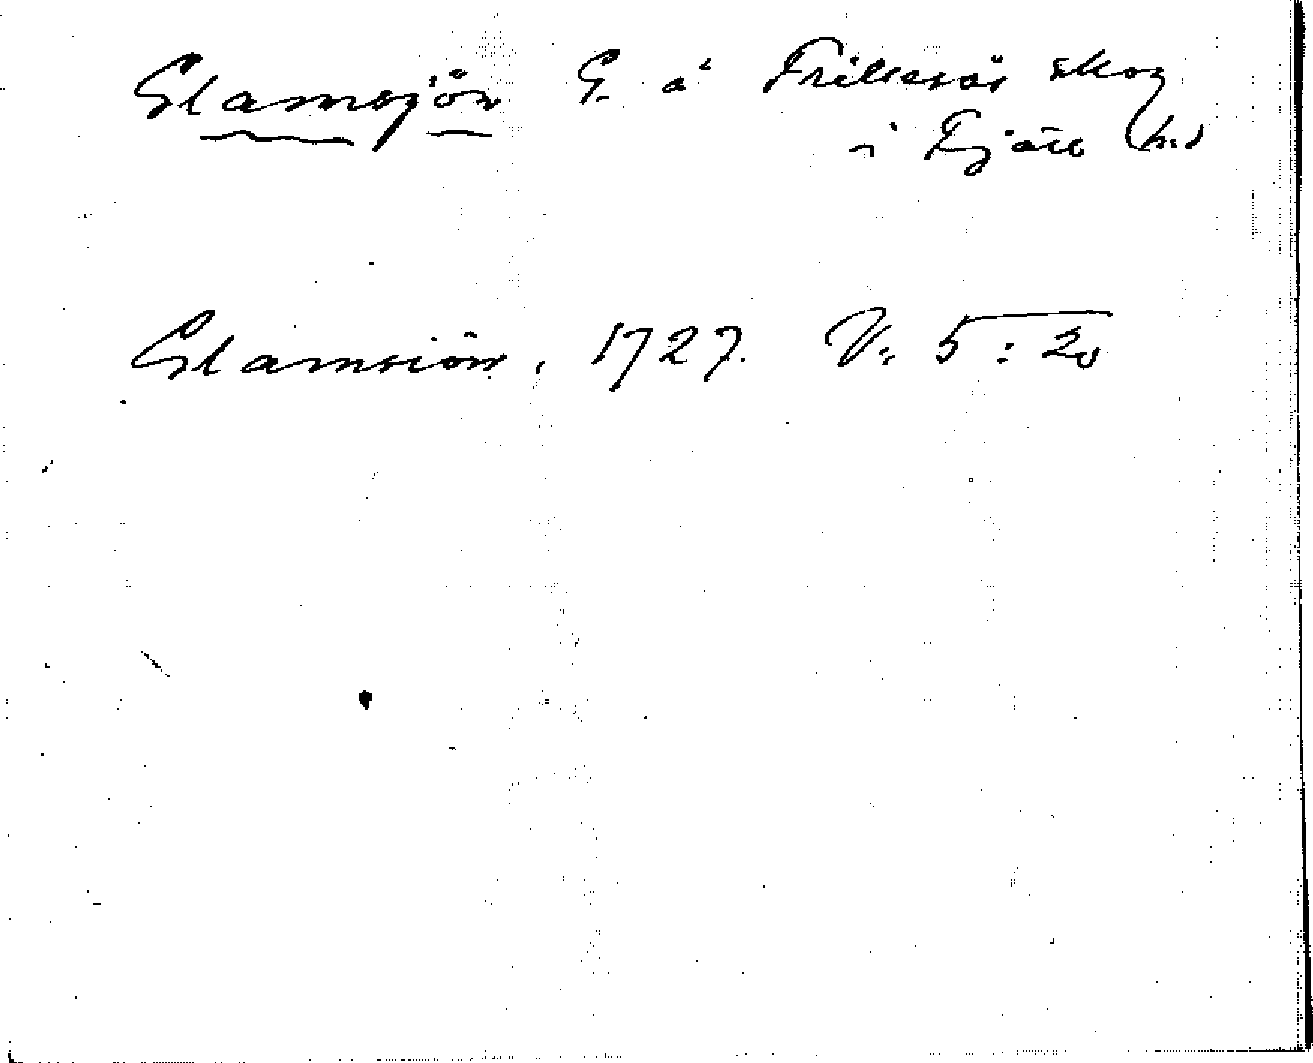 Glamsjön G. å Frillesås skog
i Fjäre hd
Glamsiön, 1727. V. 5:20